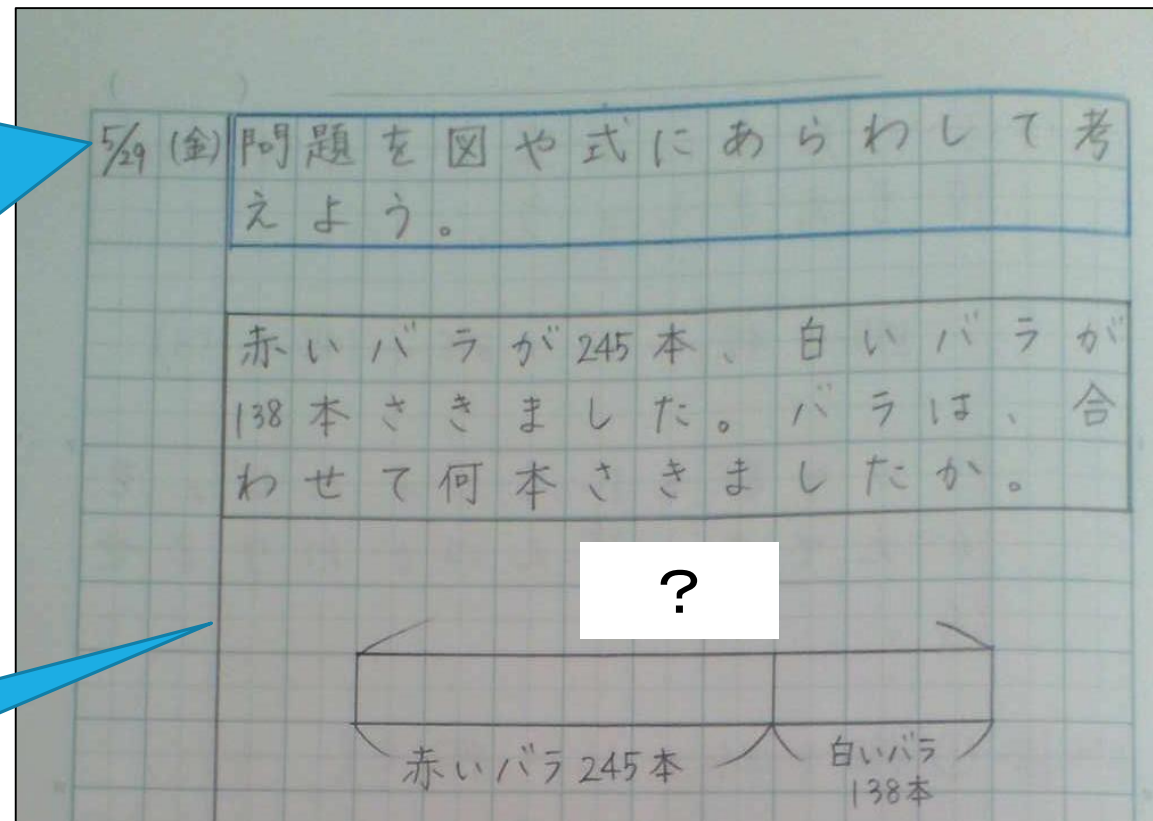 (　　)
5/29 (金) 問題を図や式にあらわして考
えよう。
赤いバラが245本、白いバラが
138本さきました。バラは、合
わせて何本さきましたか。
?
赤いバラ245本
白いバラ
138本